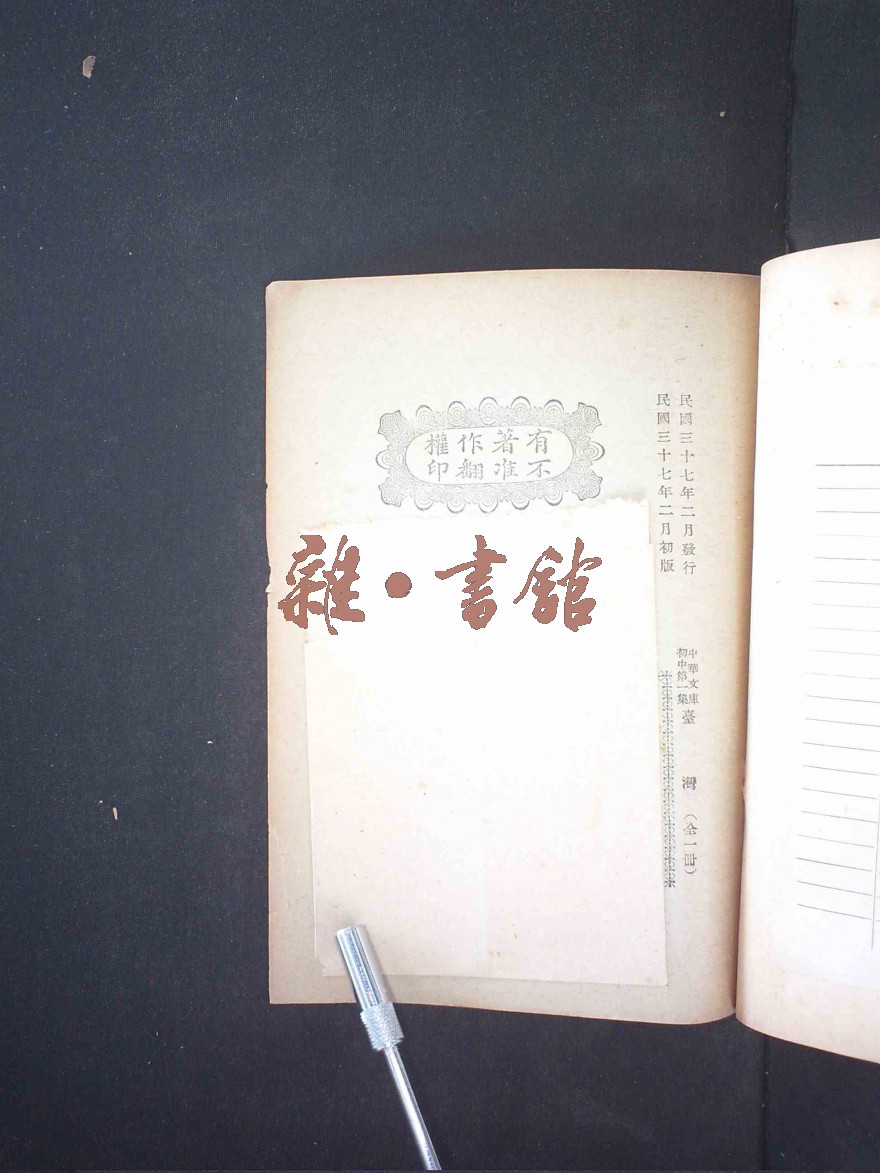 民國三十七年二月發行
民國三十七年二月初版
中華文庫
初中第一集
臺灣（全一冊）
有著作權
不准翻印
雜·書館